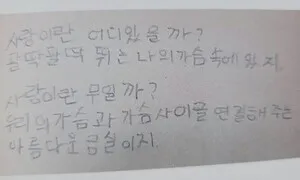 사랑이란 어디있을까?
팔딱팔딱 뛰는 나의가슴속에 있지.
사랑이란 무얼까?
우리의가슴과 가슴사이를 연결해 주는
아름다운 금실이지.